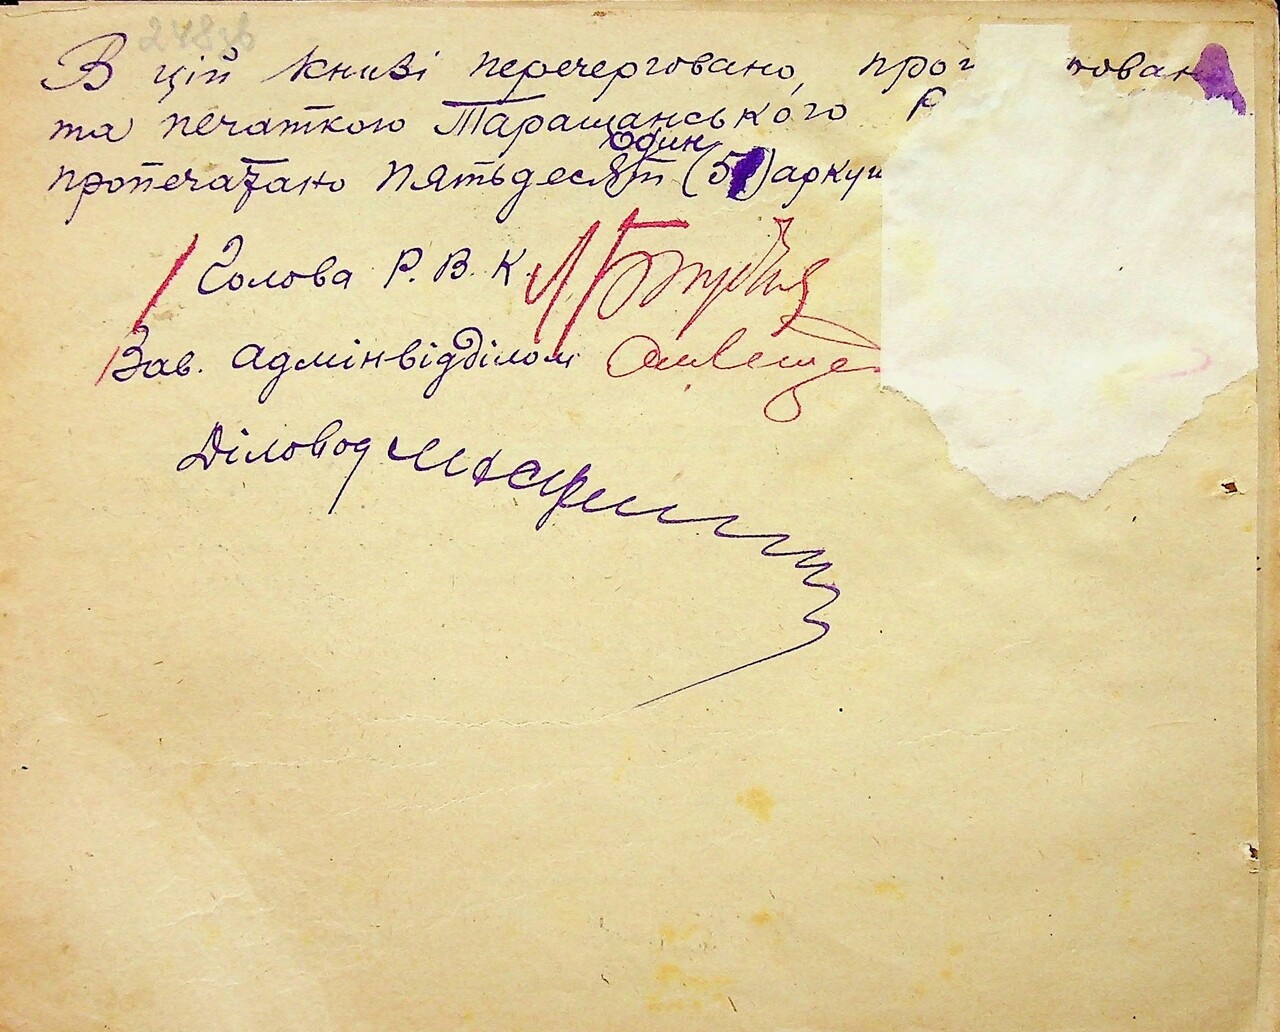 248зв
В цій книзі перечерговано, прог нован
та печаткою Таращанського Р
один
пропечатано пятьдесят (51) аркуш
Голова Р. В. К.
Зав. адмінвідділом
Діловод